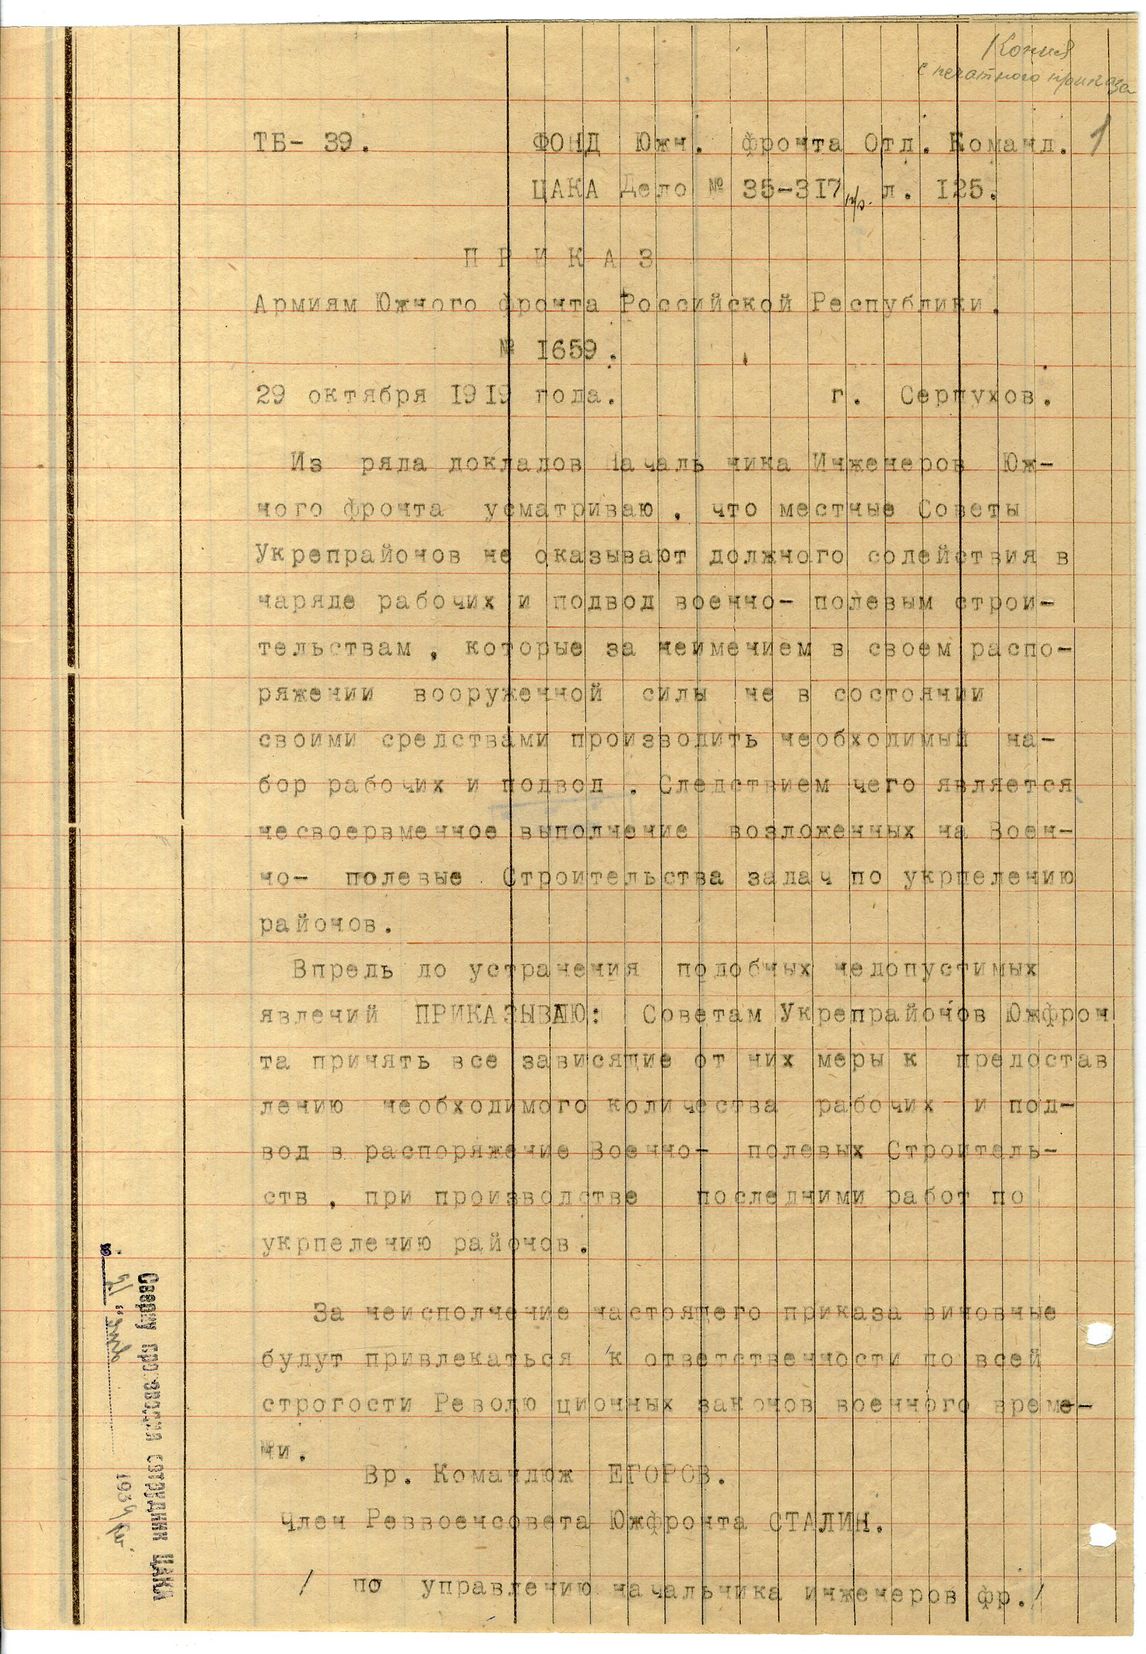 Копия
с печатного приказа
1
ТБ- 39.
ФОНД Южн. фронта Отд. Команд.
ЦАКА Дело № 35-317 л. 125.
П Р И К А З
Армиям Южного фронта Российской Республики.
№ 1659.
29 октября 1919 года. г. Серпухов.
Из ряда докладов Началь ника Инженеров Юж-
ного фронта усматриваю, что местные Советы
Укрепрайонов не оказывают должного содействия в
наряде рабочих и подвод военно- полевым строи-
тельствам, которые за неимением в своем распо-
ряжении вооруженной силы не в состоянии
своими средствами производить необходимый на-
бор рабочих и подвод. Следствием чего является
несвоервменное выполнение возложенных на Воен-
но- полевые Строительства задач по укрпелению
районов.
Впредь до устранения подобных недопустимых
явлений ПРИКАЗЫВАЮ: Советам Укрепрайонов Южфрон
та принять все зависящие от них меры к предостав
лению необходимого количества рабочих и под-
вод в распоряжение Военно- полевых Строитель-
ств, при производстве последними работ по
укрпелению районов.
За неисполнение настоящего приказа виновные
будут привлекаться к ответственности по всей
строгости Револю ционных законов военного време-
ни.
Вр. Командюж ЕГОРОВ.
Член Реввоенсовета Южфронта СТАЛИН.
/ по управлению начальника инженеров фр./
Сверку производил сотрудник ЦАКА
193